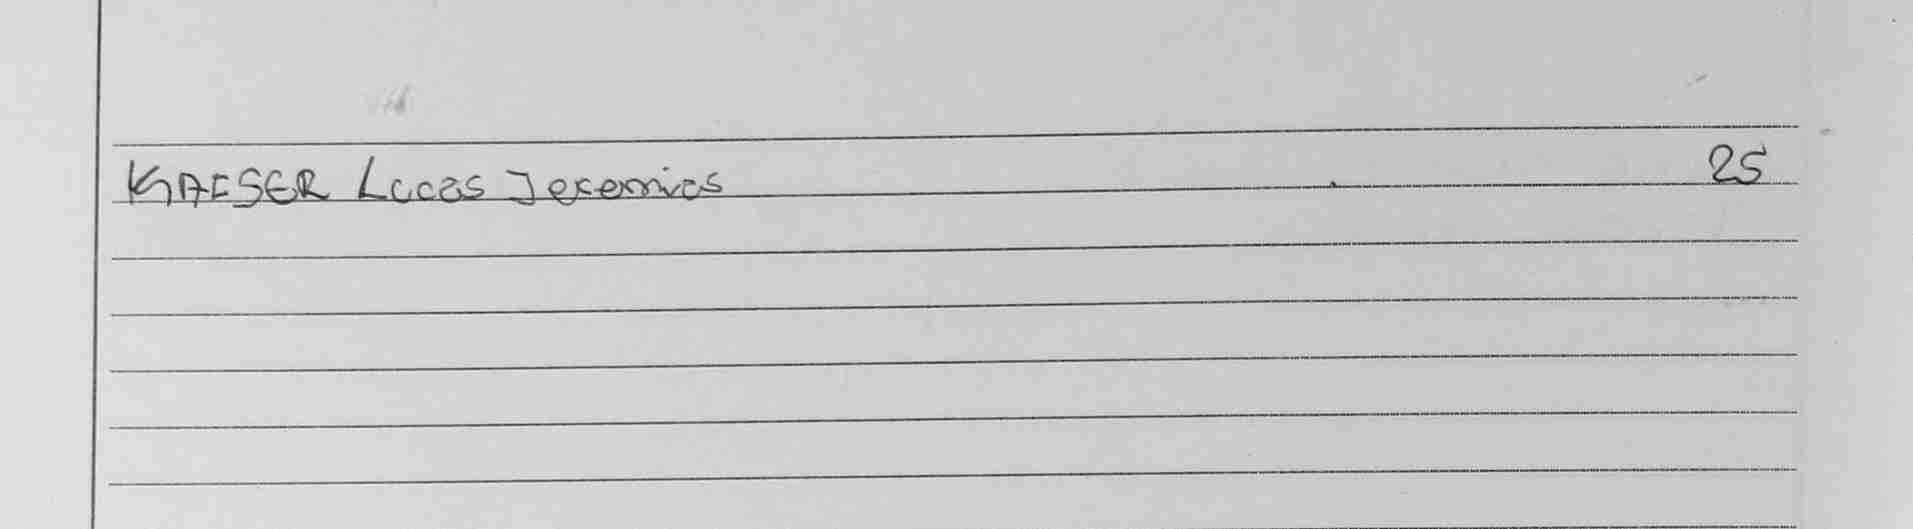 KAESER Lucas Jeremias 25